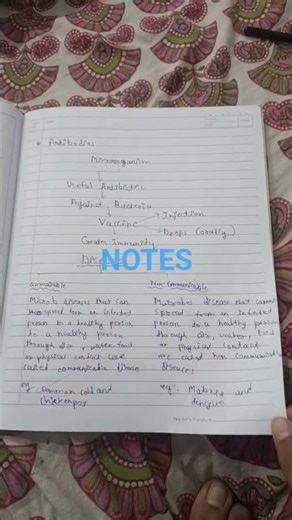 * Antibodies
Microorganism
Useful Antibiotics
Against Bacteria
Vaccine → Injection
→ Drops (orally)
Greater Immunity
NOTES
Communicable
Microb diseases that can
spread from an infected
person to a healthy person
to a healthy person
through air, water, food
or physical contact are
called communicable disease
eg - common cold and
chickenpox
Non Communicable
Microbes disease that cannot
spread from an infected
person to a healthy person
through air, water, food
or physical contact
are called Non Communicable
diseases
eg: Malaria and
dengue